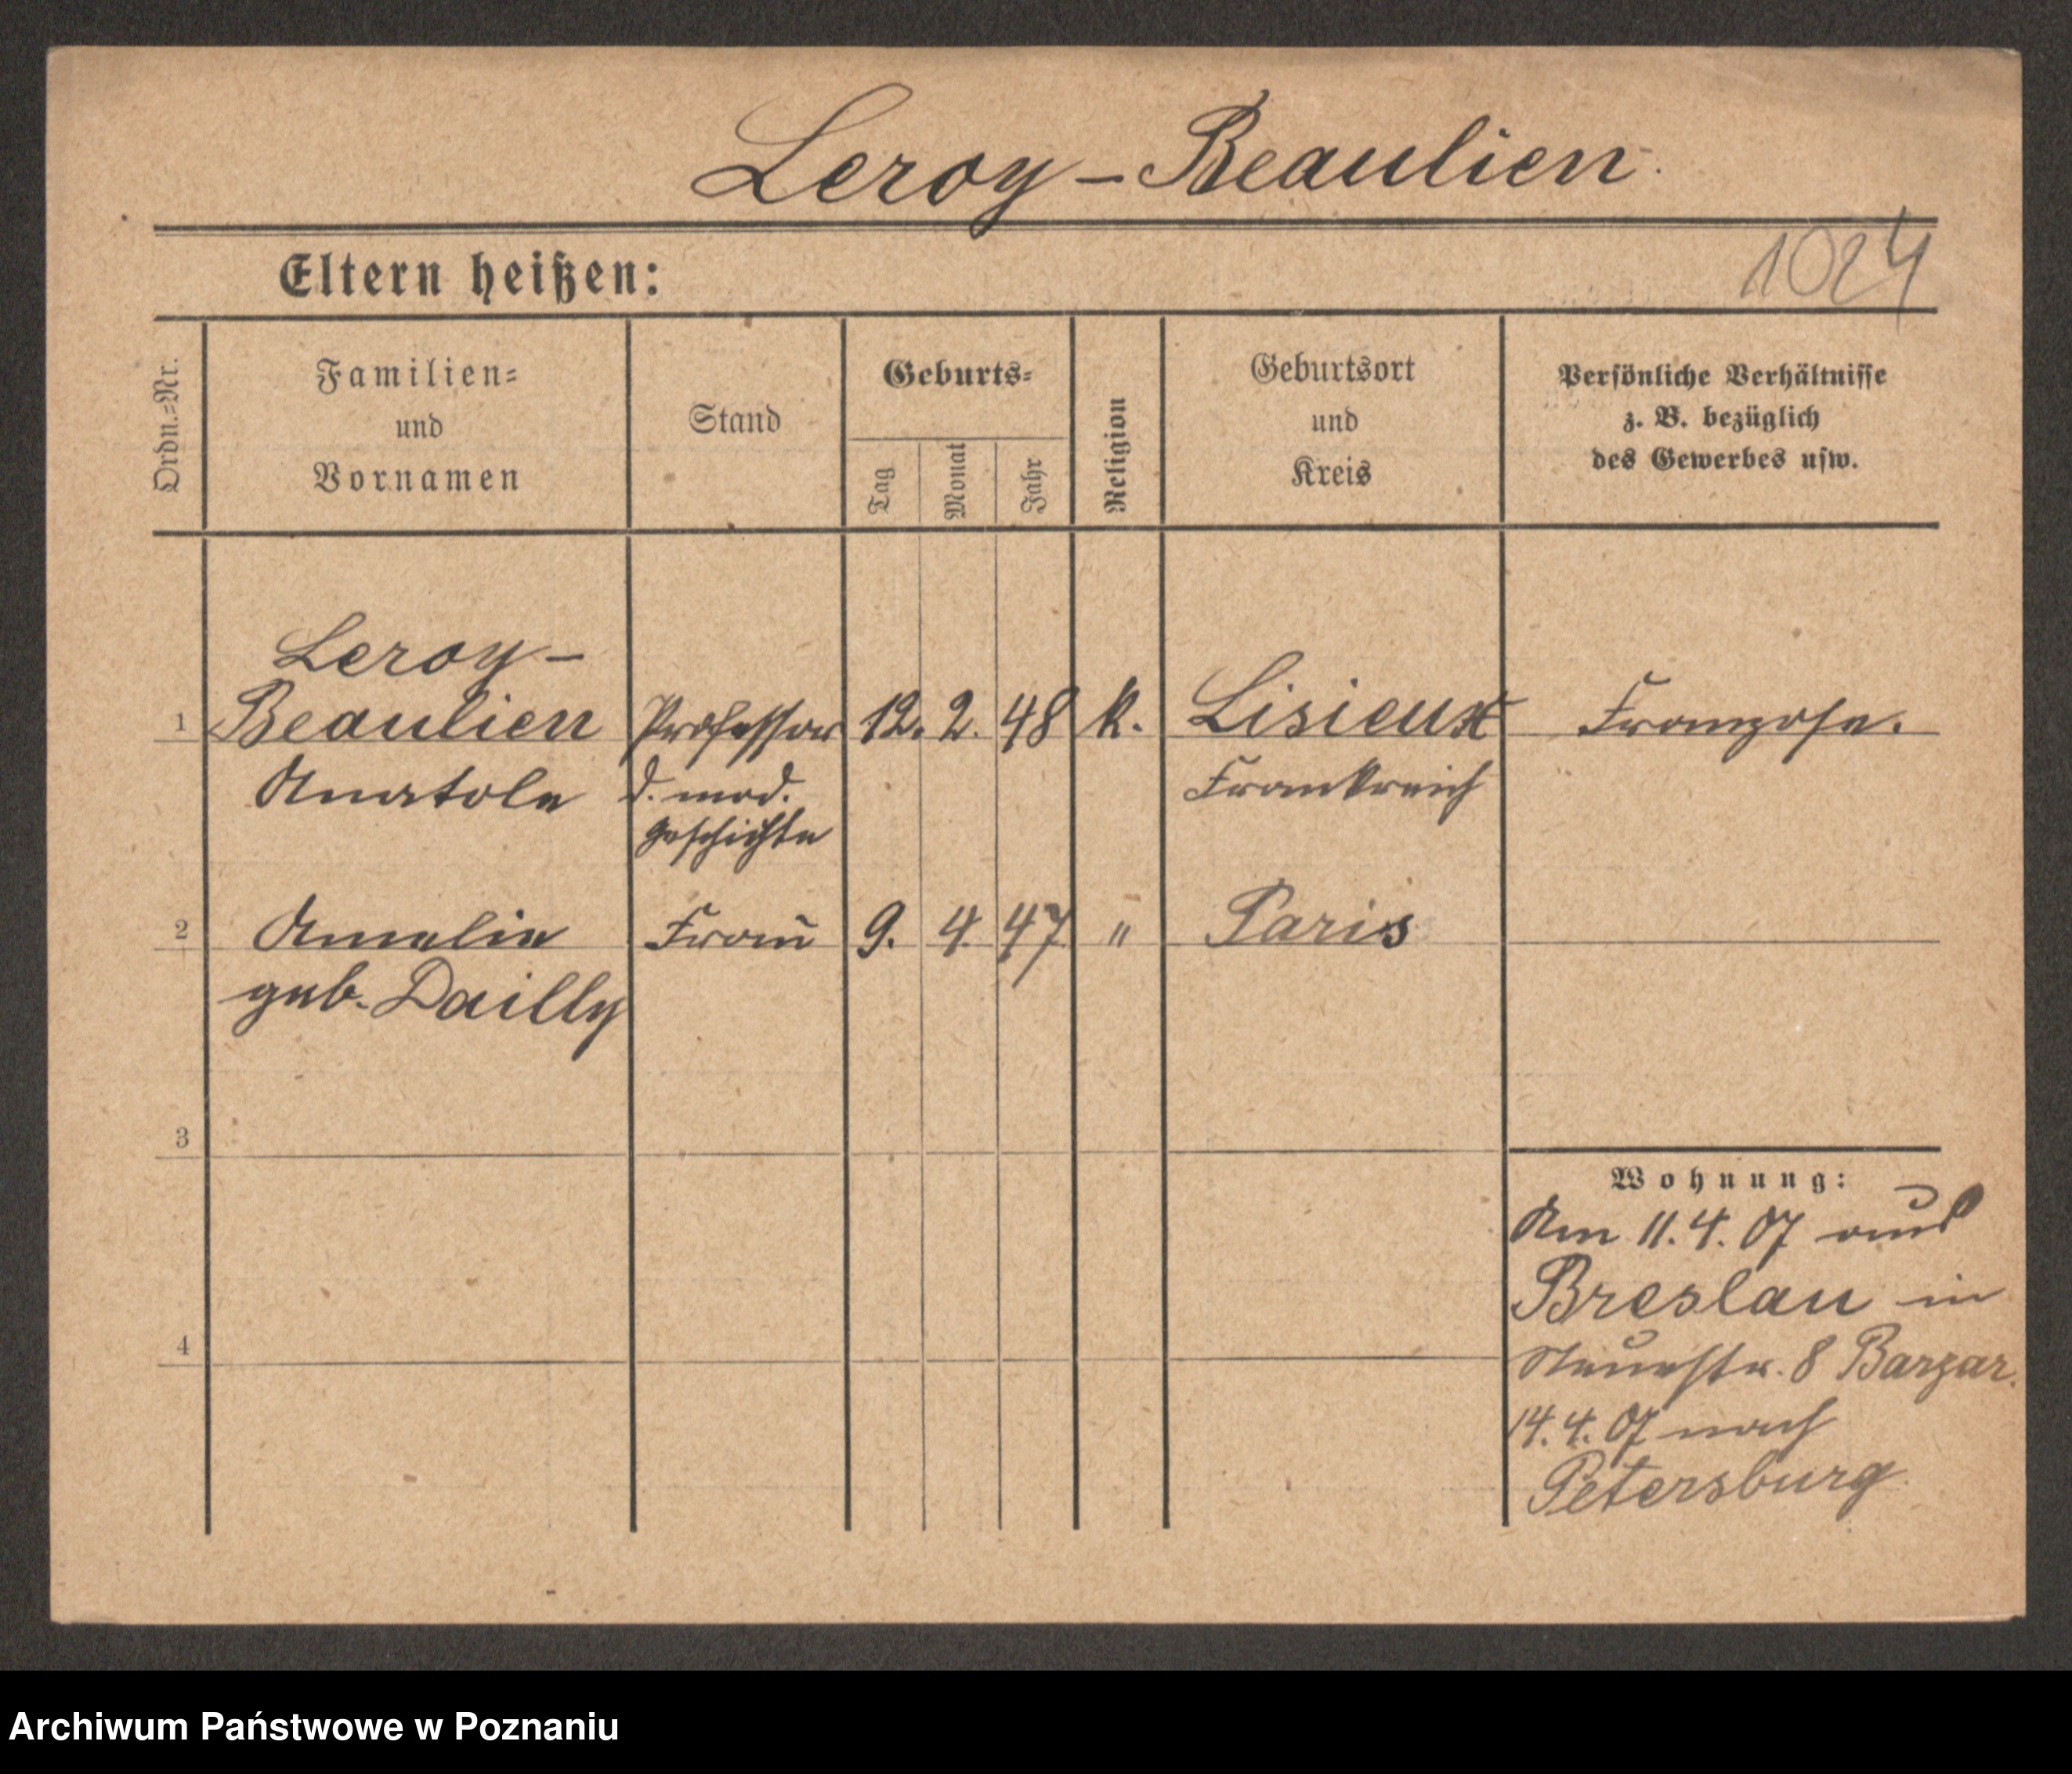 Leroy-Beaulien.
Eltern heißen:
1024
Ordn.-Nr.
Familien-
und
Vornamen
Stand
Geburts-
Tag
Monat
Jahr
Religion
Geburtsort
und
Kreis
Persönliche Verhältnisse
z. B. bezüglich
des Gewerbes usw.
Leroy-
1 Beaulien Professor 12. 2. 48 k. Lisieux Franzose.
Anatole d. mod. Frankreich
Geschichte
2 Amelie Frau 9. 4. 47 " Paris
geb. Dailly
3
Wohnung:
Am 11. 4. 07 aus
Breslau in
4 Neuestr. 8 Barzar.
14. 4. 07 nach
Petersburg.
Archiwum Państwowe w Poznaniu